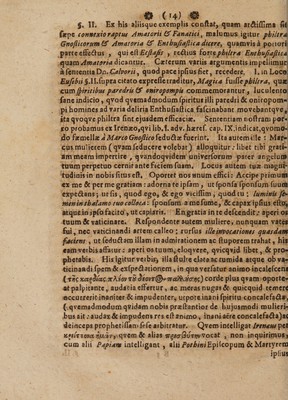 (14)
§. II. Ex his aliisque exemplis constat, quam arctissima sit
sæpe connexio raptus Amatorii & Fanatici, malumus igitur philtra
Gnosticorum & Amatoria & Enthusiastica dicere, quamvis à potiori
parte effectus, qui est Ecstasis, rectius foris philtra Enthusiastica
quam Amatoria dicantur. Cæterum variis argumentis impellimur
à sententia Dn. Calvorii, quod pace ipsius fiat, recedere. I. in Loco
Eusebii §. II. supra citato expresse traditur, Magica fuisse philtra, quæ
cum spiritibus paredris & oniropompis commemorantur, luculento
sane indicio, quod quemadmodum spiritus illi paredri & oniropom-
pi homines ad varia deliria Enthusiastica fascinabant movebantque,
ita quoque philtra sint ejusdem efficaciæ. Sententiam nostram por-
ro probamus ex Irenæo, qui lib. I. adv. hæres. cap. IX. indicat, quomo-
do fœmellæ à Marco Gnostico seductæ fuerint. Ita autem ille: Mar-
cus mulierem (quam seducere volebat) alloquitur: libet tibi grati-
am meam impertire, quandoquidem universorum pater angelum
tuum perpetuo cernit ante faciem suam. Locus autem tuæ magni-
tudinis in nobis situs est. Oportet nos unum effici: Accipe primum
ex me & per me gratiam: adorna te ipsam, ut sponsa sponsum suum
expectans; ut sis, quod ego, & ego vicissim, quod tu: luminis se-
men in thalamo tuo colloca: sponsum a me sume, & capax ipsius esto,
atque in ipso facito, ut capiaris. En gratia in te descendit; aperi os
tuum & vaticinare. Respondente autem muliere, nunquam vatici-
nor, nec vaticinandi artem calleo: rursus ille invocationes quasdam
faciens, ut seductam illam in admirationem ac stuporem trahat, his
eam verbis affatur: aperi os tuum, eloquere, quicquid libet, & pro-
phetabis. His igitur verbis, illa stulte elata ac tumida atque ob va-
ticinandi spem & exspectationem, in quo versatur animo incalescente
corde plus quam oporte-
at palpitante, audatia effertur, ac meras nugas & quicquid temere
occurrerit inaniter & impudenter, utpote inani spiritu concalefacta,
(quemadmodum quidam nobis præstantior de hujusmodi mulieri-
bus ait: audax & impudens res est animo, inani aëre concalefacta) ac
deinceps prophetissam sese arbitratur. Quem intelligat Irenæus per
quem & alias vocat, non inquirimus,
cum alii Papiam intelligant, alii Pothini Episcopum & Martyrem
ipsius